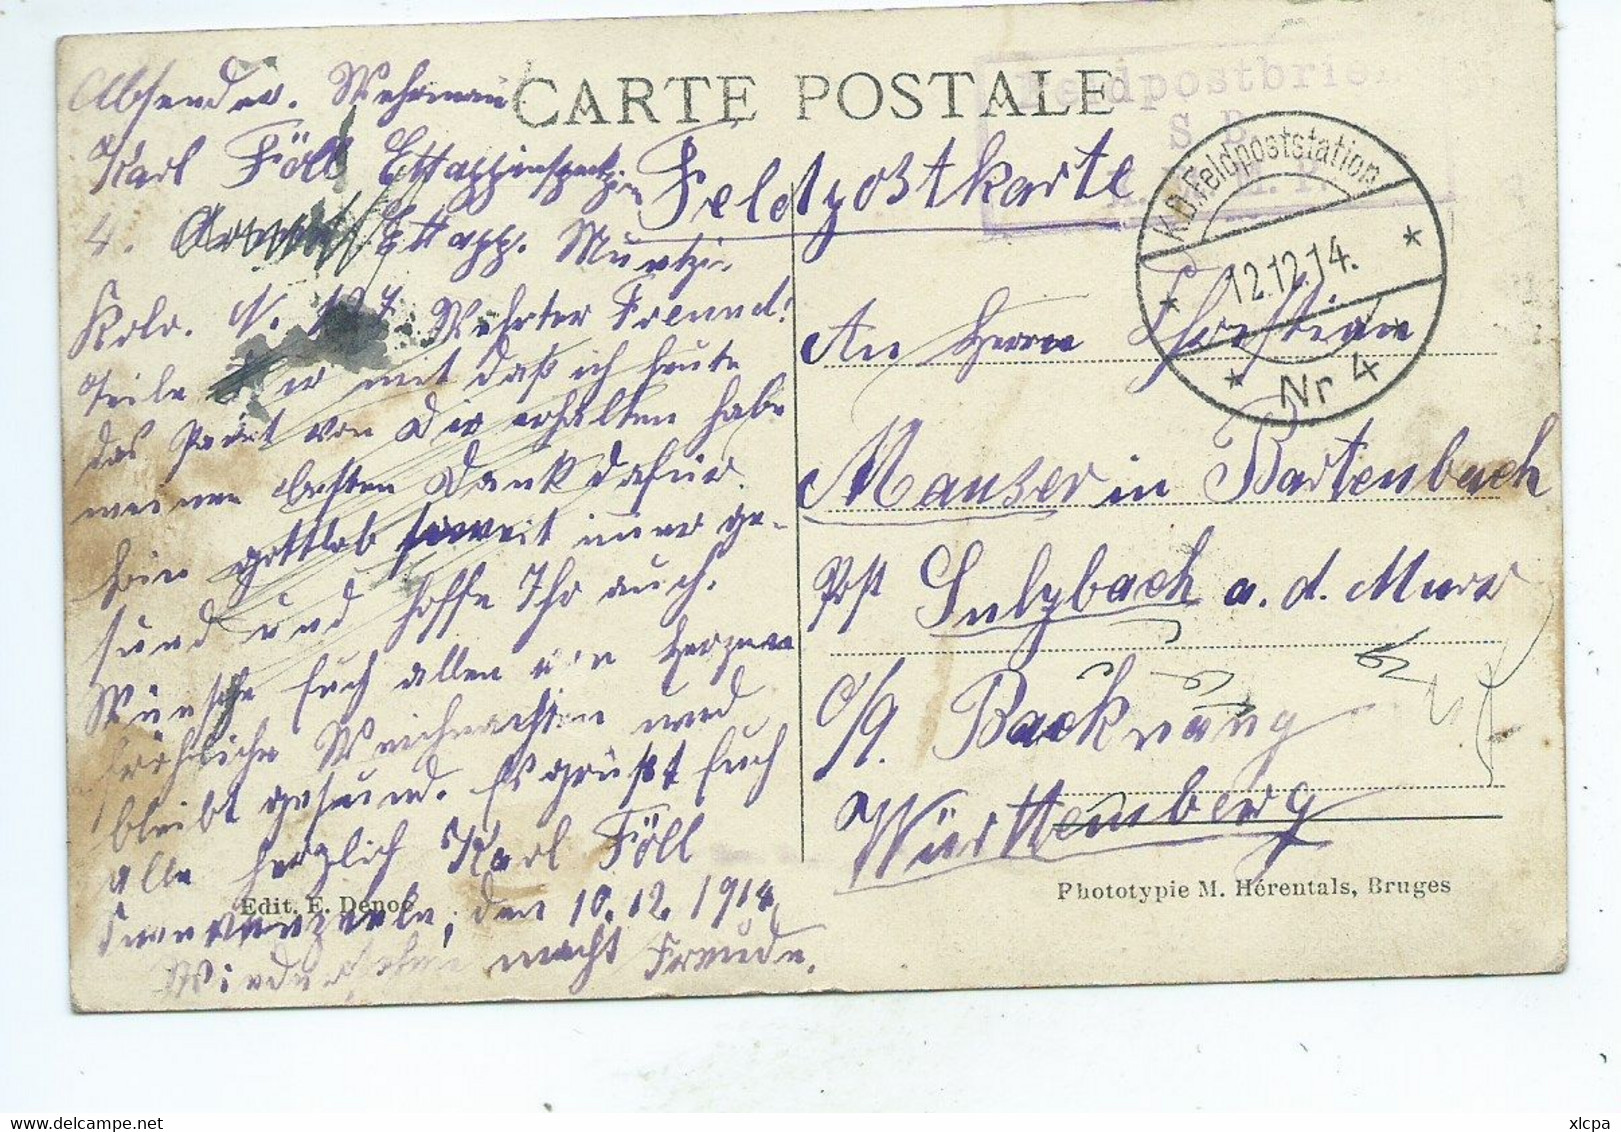 CARTE POSTALE
Feldpostbrief
S. B.
Feldpostkarte
K.D. Feldpoststation
12.12.14.
Nr 4
Absender. Wehrmann
Karl Föll Ettappinspekt.
4. Ettapp. Munszi.
Kolo. N. 127. Wehrter Freund!
Teile Dir mit daß ich heute
das Paket von Dir erhalten habe
meinen besten Dank dafür.
bin gottlob soweit immer ge-
sund und hoffe Ihr auch.
Wünsche Euch allen von Herzen
fröhliche Weihnachten und
bleibt gesund. Es grüßt Euch
alle herzlich Karl Föll
den 10.12.1914
Wiedersehen macht Freude.
An Herrn Christian
Mauser in Bartenbach
Post Sulzbach a. d. Murr
O/A. Backnang
Württemberg
Edit. E. Denoe
Phototypie M. Hérentals, Bruges
xlcpa